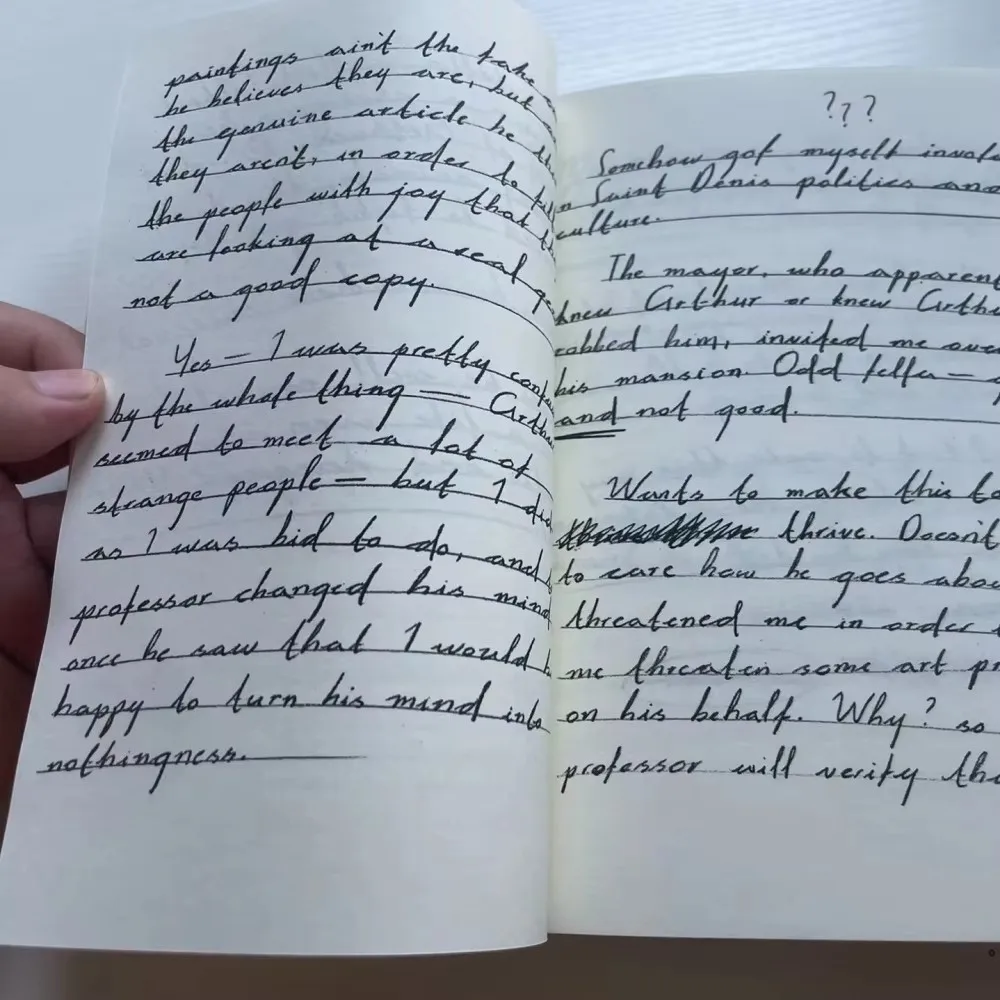 paintings ain't the fake
he believes they are, but
the genuine article he
they aren't, in order to
the people with joy that
are looking at a real
not a good copy.
Yes – I was pretty
by the whole thing –
seemed to meet a lot of
strange people – but I
as I was bid to do, and
professor changed his mind
once he saw that I would
happy to turn his mind into
nothingness.
???
Somehow got myself
Saint Denis politics and
culture.
The mayor, who
knew Arthur or knew
robbed him, invited me
his mansion. Odd fella –
and not good.
Wants to make this
thrive. Doesn't
to care how he goes
threatened me in order
me threaten some art
on his behalf. Why? so
professor will verify